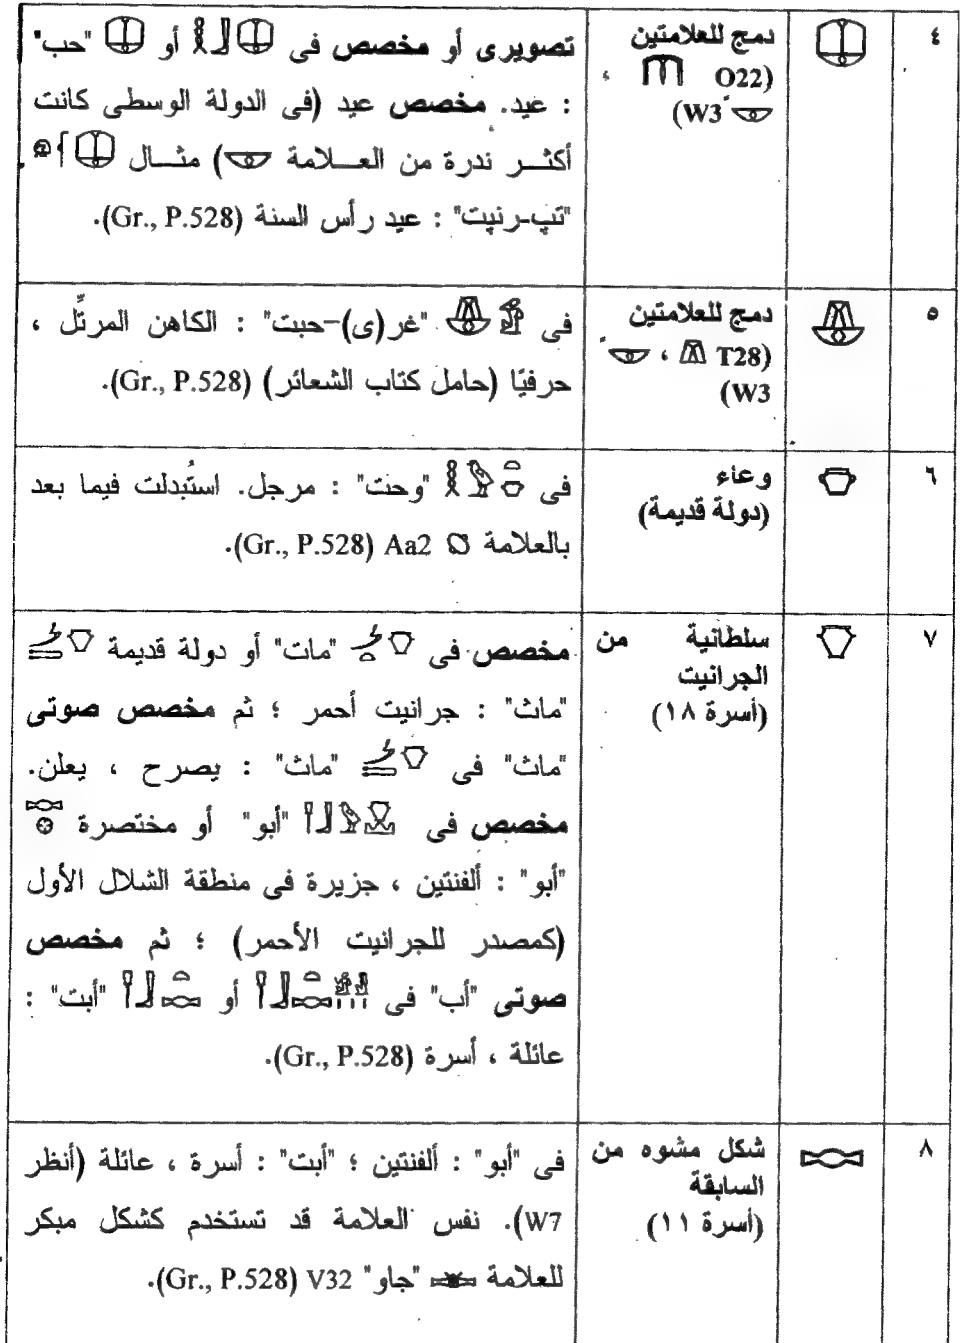 ٤
دمج للعلامتين
(O22 ،
W3)
تصويرى أو مخصص فى أو "حب"
: عيد. مخصص عيد (فى الدولة الوسطى كانت
أكثر ندرة من العلامة) مثال
"تپ-رنپت" : عيد رأس السنة (Gr., P.528).
٥
دمج للعلامتين
(T28 ،
W3)
فى "غر(ى)-حبت" : الكاهن المرتِّل ،
حرفيًا (حامل كتاب الشعائر) (Gr., P.528).
٦
وعاء
(دولة قديمة)
فى "وحت" : مرجل. استُبدلت فيما بعد
بالعلامة Aa2 (Gr., P.528).
٧
سلطانية من
الجرانيت
(أسرة ١٨)
مخصص فى "مات" أو دولة قديمة
"ماث" : جرانيت أحمر ؛ ثم مخصص صوتى
"ماث" فى "ماث" : يصرح ، يعلن.
مخصص فى "أبو" أو مختصرة
"أبو" : ألفنتين ، جزيرة فى منطقة الشلال الأول
(كمصدر للجرانيت الأحمر) ؛ ثم مخصص
صوتى "أب" فى أو "أبت" :
عائلة ، أسرة (Gr., P.528).
٨
شكل مشوه من
السابقة
(أسرة ١١)
فى "أبو" : ألفنتين ؛ "أبت" : أسرة ، عائلة (أنظر
W7). نفس العلامة قد تستخدم كشكل مبكر
للعلامة "جاو" V32 (Gr., P.528).